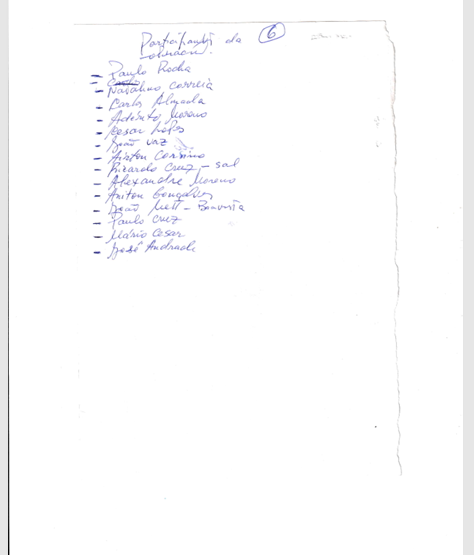 Participantes da 6
- Paulo Rocha
- Natalino Correia
- Carlos Almada
- Adérito Moreno
- Cesar Lopes
- João Vaz
- Airton
- Ricardo Cruz - sal
- Alexandre Moreno
- Airton Gonçalves
- João - Boavista
- Paulo Cruz
- Mário Cesar
- José Andrade